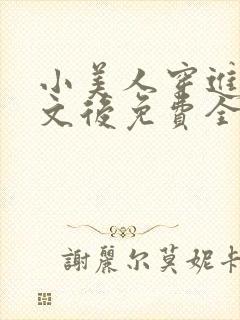 小美人穿進
文後免費全
謝麗尔莫妮卡